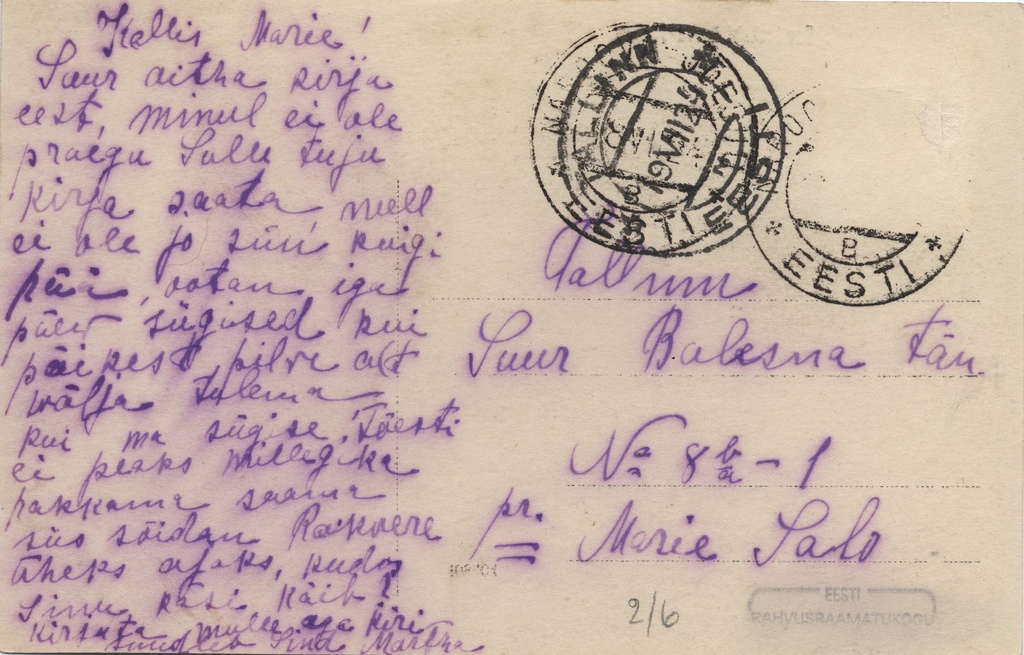 Kallis Marie!
Suur aitha kirja
eest, minul ei ole
praegu Sulle tuju
kirja saata mull
ei ole jo siin kuigi
pää, ootan iga
päev sügised kui
päikest pilve alt
wälja tulema
kui ma sügise. Tõesti
ei peaks millegi ka
hakkama saama
siis sõidan Rakvere
üheks ajaks, kudas
Sinu käsi käib?
Kirjuta mulle aga kiri
Sind Martha
TALLINN
9 VII 29
EESTI
B
EESTI
Tallinn
Suur Balesna tän.
No 8 b/a - 1
pr. Marie Salo
2/6
EESTI
RAHVUSRAAMATUKOGU